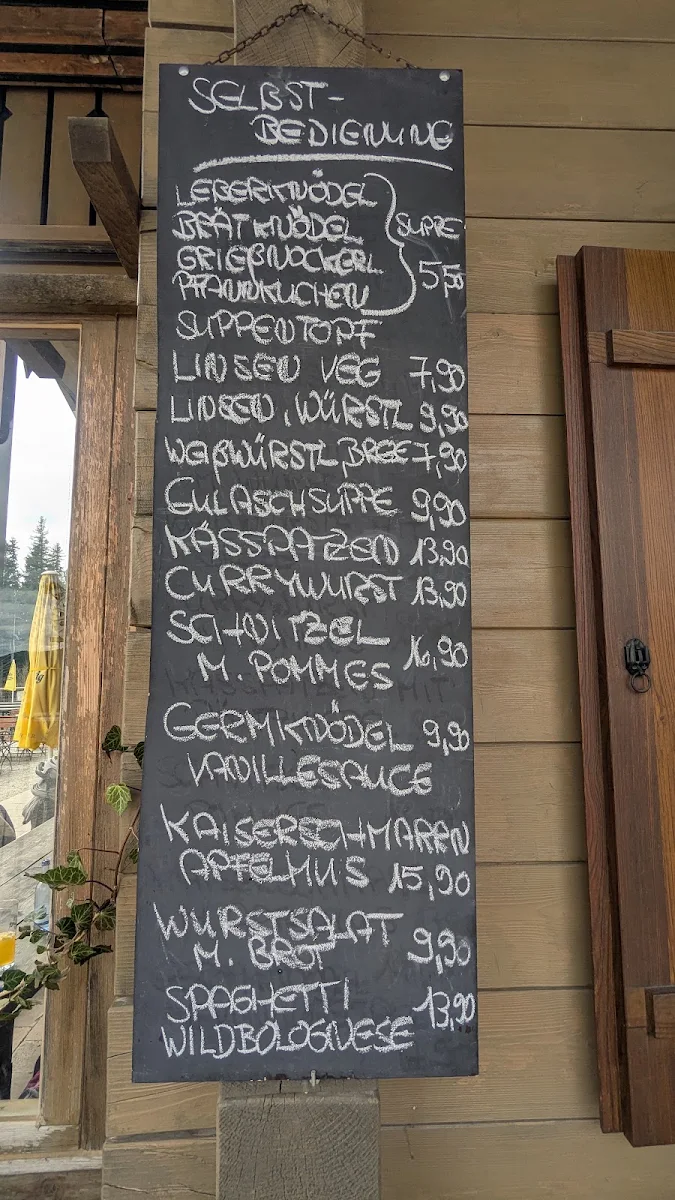 SELBST-
BEDIENUNG
LEBERKNÖDEL
BRÄTKNÖDEL
GRIEßNOCKERL
PFANNKUCHEN
SUPPE
5,50
SUPPENTOPF
LINSEN VEG 7,90
LINSEN, WÜRSTL 9,90
WEIßWÜRSTL, BREZE 7,90
GULASCHSUPPE 9,90
KÄSSPATZEN 13,90
CURRYWURST 13,90
SCHNITZEL
M. POMMES 16,90
GERMKNÖDEL 9,90
VANILLESAUCE
KAISERSCHMARRN
APFELMUS 15,90
WURSTSALAT
M. BROT 9,90
SPAGHETTI 13,90
WILDBOLOGNESE